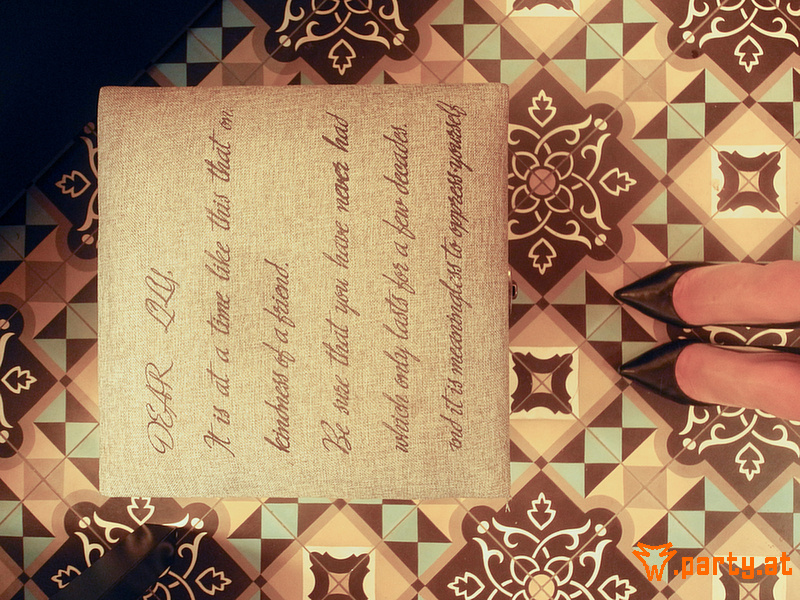 DEAR LILY,
It is at a time like this that on
kindness of a friend.
Be sure that you have never had
which only lasts for a few decades.
and it is meaningless to oppress yourself
.party.at